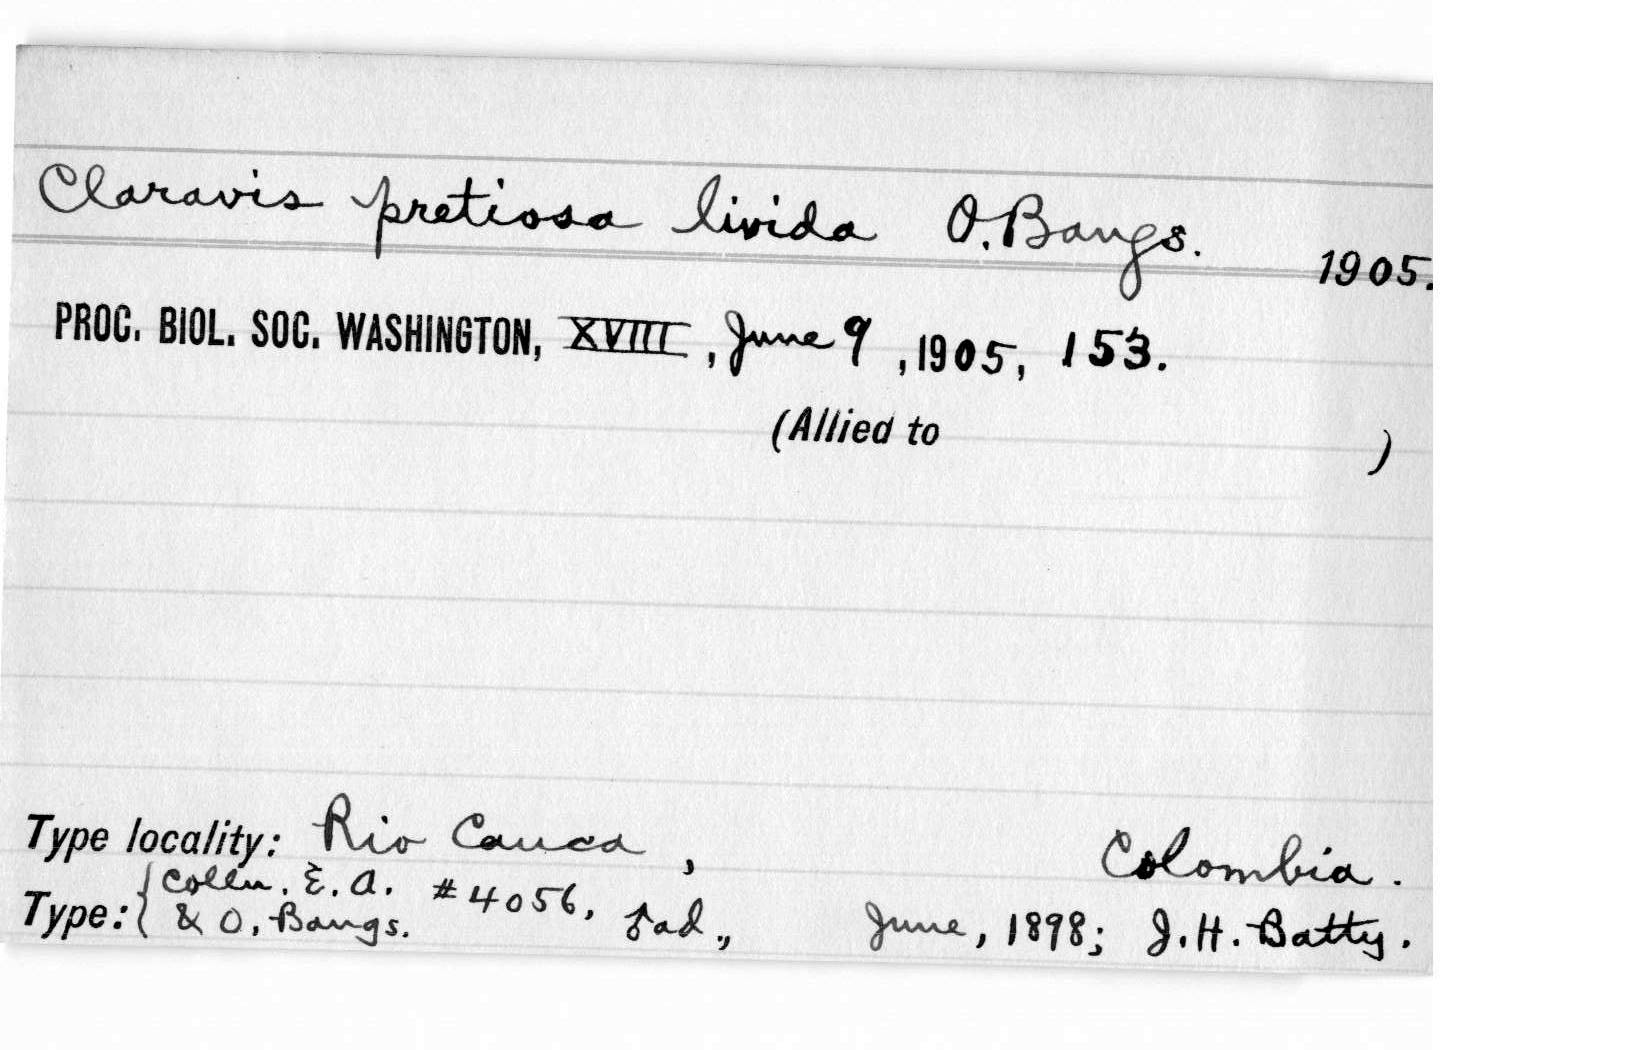 Claravis pretiosa livida O. Bangs. 1905.
PROC. BIOL. SOC. WASHINGTON, XVIII, June 9, 1905, 153.
(Allied to )
Type locality: Rio Cauca, Colombia.
Type: { Colln. E. A. & O. Bangs. #4056, ad., June, 1898; J. H. Batty.